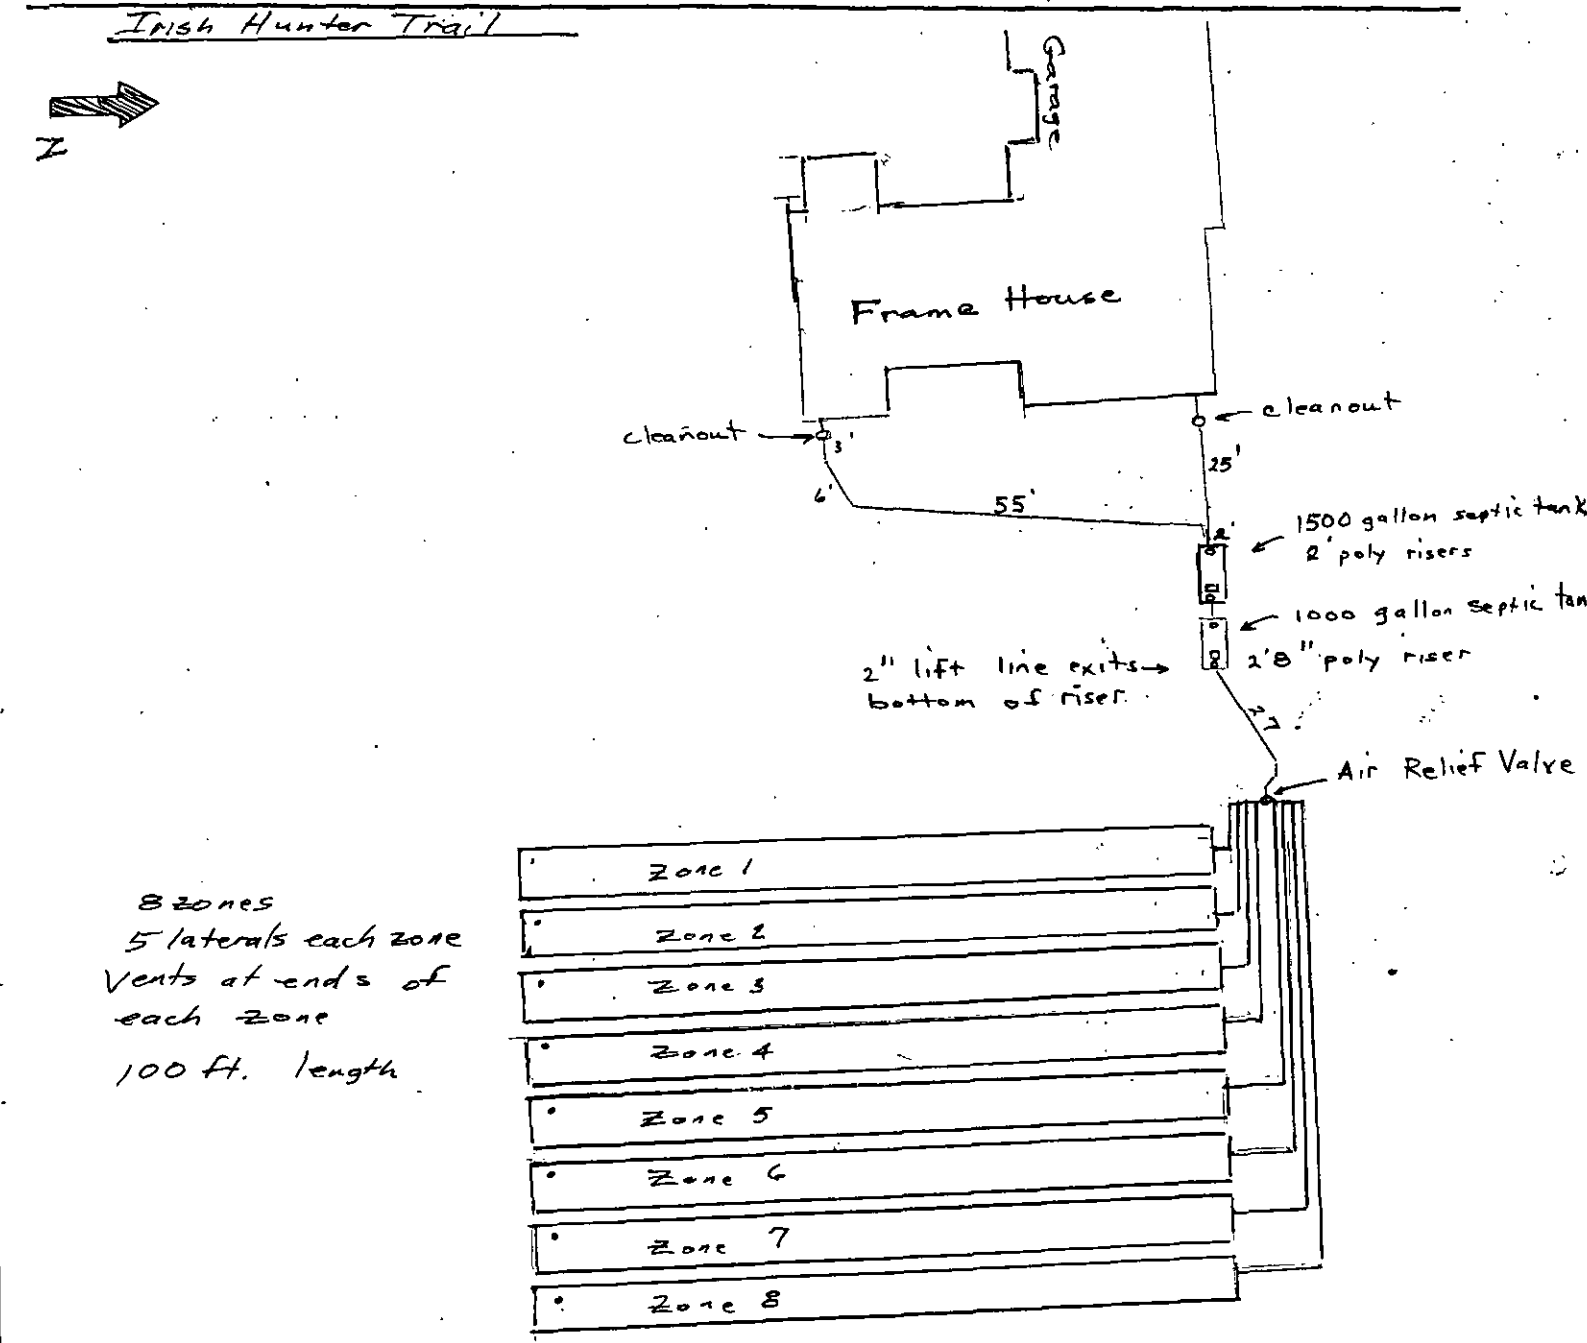 Irish Hunter Trail
Garage
N
Frame House
cleanout
cleanout
3'
25'
6'
55'
2'
1500 gallon septic tank
2' poly risers
1000 gallon septic tan
2'8" poly riser
2" lift line exits
bottom of riser
27
Air Relief Valve
Zone 1
8 zones
5 laterals each zone
Vents at ends of
each zone
100 ft. length
Zone 2
Zone 3
Zone 4
Zone 5
Zone 6
Zone 7
Zone 8